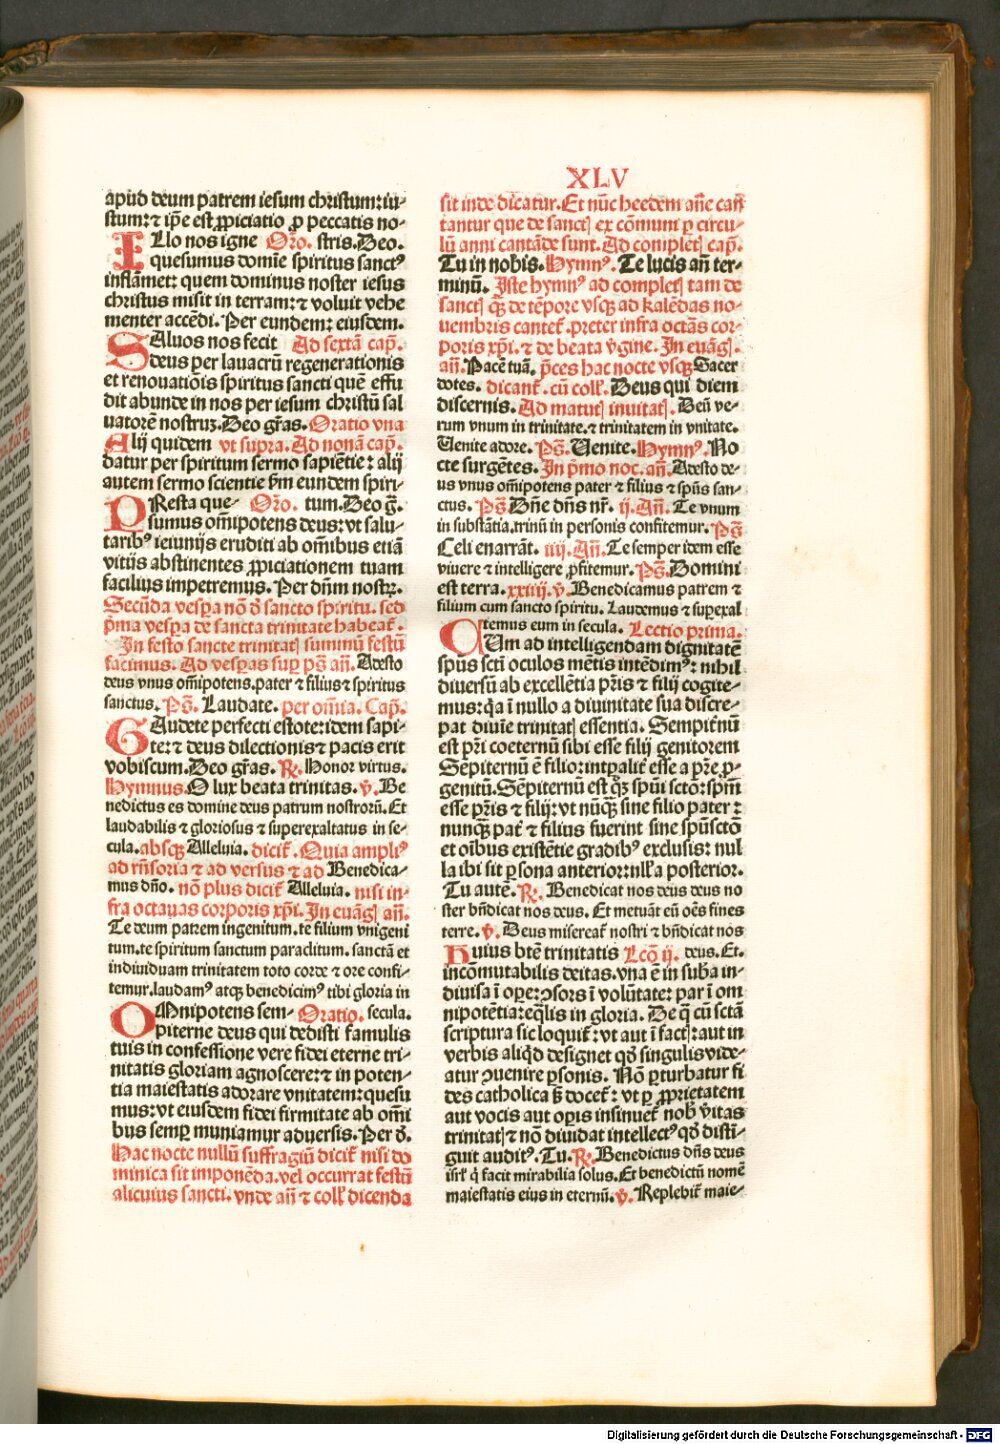 XLV
apud deum patrem iesum christum: iu-
stum: ⁊ ip̃e est ꝓpiciatio ꝓ peccatis no-
ILlo nos igne Or̃o. stris. Deo.
quesumus domĩe spiritus sanctꝰ
inflãmet: quem dominus noster iesus
christus misit in terram: ⁊ voluit vehe
menter accẽdi. Per eundem: eiusdem.
SAluos nos fecit Ad sextã cap̃.
deus per lauacrũ regenerationis
et renouatiõis spiritus sancti quẽ effu
dit abunde in nos per iesum christũ sal
uatorẽ nostruꝫ. Deo gr̃as. Oratio vna
Alij quidem vt supra. Ad nonã cap̃.
datur per spiritum sermo sapiẽtie: alij
autem sermo scientie ẜm eundem spiri-
PResta que- Or̃o. tum. Deo g̃.
sumus om̃ipotens deus: vt salu-
taribꝰ ieiunijs eruditi ab om̃ibus etiã
vitijs abstinentes ꝓpiciationem tuam
facilius impetremus. Per dñm nostꝝ.
Secũda vesꝑa nõ d̃ sancto spiritu. sed
p̃ma vesꝑa de sancta trinitate habeat̃.
In festo sancte trinitatꝭ summũ festũ
facimus. Ad vesꝑas suꝑ pš añ. Adesto
deus vnus om̃ipotens. pater ⁊ filius ⁊ spiritus
sanctus. Pš. Laudate. per om̃ia. Cap̃.
GAudete perfecti estote: idem sapi-
te: ⁊ deus dilectionis ⁊ pacis erit
vobiscum. Deo gr̃as. ℟. Honor virtus.
Hymnus. O lux beata trinitas. ℣. Be
nedictus es domine deus patrum nostrorũ. Et
laudabilis ⁊ gloriosus ⁊ superexaltatus in se-
cula. absqꝫ Alleluia. dicit̃. Quia ampliꝰ
ad rñsoria ⁊ ad versus ⁊ ad Benedica-
mus dño. nõ plus dicit̃ Alleluia. nisi in-
fra octauas corporis xp̃i. In euãgꝭ añ.
Te deum patrem ingenitum. te filium vnigeni
tum. te spiritum sanctum paraclitum. sanctã et
indiuiduam trinitatem toto corde ⁊ ore confi-
temur. laudamꝰ atqꝫ benedicimꝰ tibi gloria in
OMnipotens sem- Oratio. secula.
piterne deus qui dedisti famulis
tuis in confessione vere fidei eterne tri-
nitatis gloriam agnoscere: ⁊ in poten-
tia maiestatis adorare vnitatem: quesu
mus: vt eiusdem fidei firmitate ab om̃i
bus semꝑ muniamur aduersis. Per d̃.
Hac nocte nullũ suffragiũ dicit̃ nisi do
minica sit imponẽda. vel occurrat festũ
alicuius sancti. vnde añ ⁊ coll̃ dicenda
sit inde dicatur. Et nũc heedem añe cañ
tantur que de sanctꝭ ex cõmuni ꝑ circu-
lũ anni cantãde sunt. Ad completꝭ cap̃.
Tu in nobis. Hymnꝰ. Te lucis añ ter-
minũ. Iste hymnꝰ ad completꝭ tam de
sanctꝭ qꝫ̃ de tẽpore vsqꝫ ad kalẽdas no-
uembris cantet̃. preter infra octãs cor-
poris xp̃i. ⁊ de beata v̓gine. In euãgꝭ.
añ. Pacẽ tuã. p̃ces hac nocte vsqꝫ Sacer
dotes. dicant̃. cũ coll̃. Deus qui diem
discernis. Ad matutꝭ inuitatꝭ. Deũ ve-
rum vnum in trinitate. ⁊ trinitatem in vnitate.
Uenite adore. Pš. Uenite. Hymnꝰ. No
cte surgẽtes. In p̃mo noc. añ. Adesto de-
us vnus om̃ipotens pater ⁊ filius ⁊ sp̃us san-
ctus. Pš Dñe dñs nr̃. ij. Añ. Te vnum
in substãtia. trinũ in personis confitemur. Pš
Celi enarrãt. iij. Añ. Te semper idem esse
viuere ⁊ intelligere ꝓfitemur. Pš. Domini
est terra. xxiiij. ℣. Benedicamus patrem ⁊
filium cum sancto spiritu. Laudemus ⁊ suꝑexal
temus eum in secula. Lectio prima.
CUm ad intelligendam dignitatẽ
sp̃us sct̃i oculos mẽtis intẽdimꝰ: nihil
diuersũ ab excellẽtia pr̃is ⁊ filij cogite-
mus: q̃a ĩ nullo a diuinitate sua discre-
pat diuĩe trinitatꝭ essentia. Sempit̃nũ
est pr̃i coeternũ sibi esse filij genitorem
Sẽpiternũ ẽ filio: intꝑalit̃ esse a pr̃e. ꝓ-
genitũ. Sẽpiternũ est qꝫ̃ sp̃ui sctõ: sp̃m̃
esse pr̃is ⁊ filij: vt nũqꝫ̃ sine filio pater:
nunqꝫ̃ pat̃ ⁊ filius fuerint sine sp̃usctõ
et oĩbus existẽtie gradibꝰ exclusis: nul
la ibi sit ꝑsona anterior: null̃a posterior.
Tu autẽ. ℟. Benedicat nos deus deus no
ster bñdicat nos deus. Et metuãt eũ oẽs fines
terre. ℣. Deus misereat̃ nostri ⁊ bñdicat nos
Huius btẽ trinitatis Lcõ ij. deus. Et.
incõmutabilis deitas. vna ẽ in sub̃a in-
diuisa ĩ oꝑe: ꝯsors ĩ volũtate: par ĩ om
nipotẽtia: eq̃lis in gloria. De q̃ cũ sctã
scriptura sic loquit̃: vt aut ĩ factꝭ: aut in
verbis aliq̃d designet qd̃ singulis vide-
atur ꝯuenire ꝑsonis. Nõ ꝑturbatur fi
des catholica ß docet̃: vt ꝑ ꝓprietatem
aut vocis aut oꝑis insinuet̃ nob̃ v̓itas
trinitatꝭ ⁊ nõ diuidat intellectꝰ qd̃ disti-
guit auditꝰ. Tu. ℟. Benedictus dñs deus
isrl̃ q̃ facit mirabilia solus. Et benedictũ nomẽ
maiestatis eius in eternũ. ℣. Replebit̃ maie-
Digitalisierung gefördert durch die Deutsche Forschungsgemeinschaft - DFG